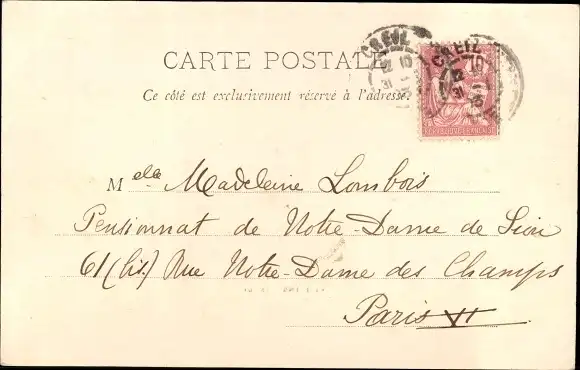 CARTE POSTALE
Ce côté est exclusivement réservé à l'adresse.
CREIL
CREIL
10
RÉPUBLIQUE FRANÇAISE
Melle Madeleine Lombois
Pensionnat de Notre-Dame de Sion
61 (bis) Rue Notre-Dame des Champs
Paris VI